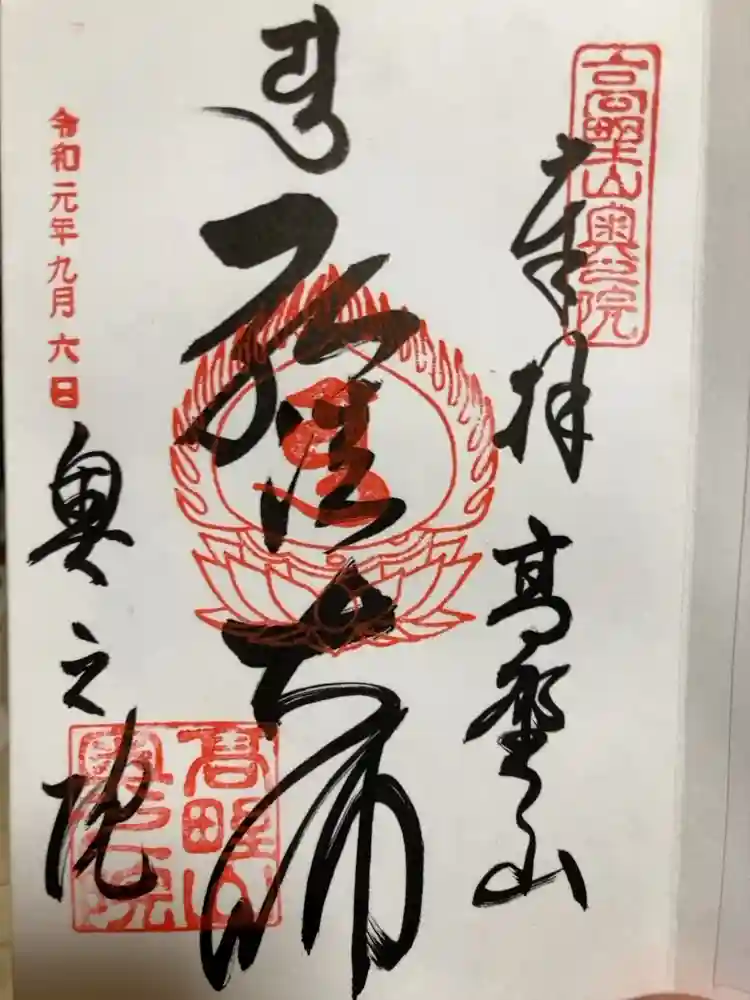 高野山奥之院
奉拝
高野山
弘法大師
令和元年九月六日
奥之院
高野山
奥之院